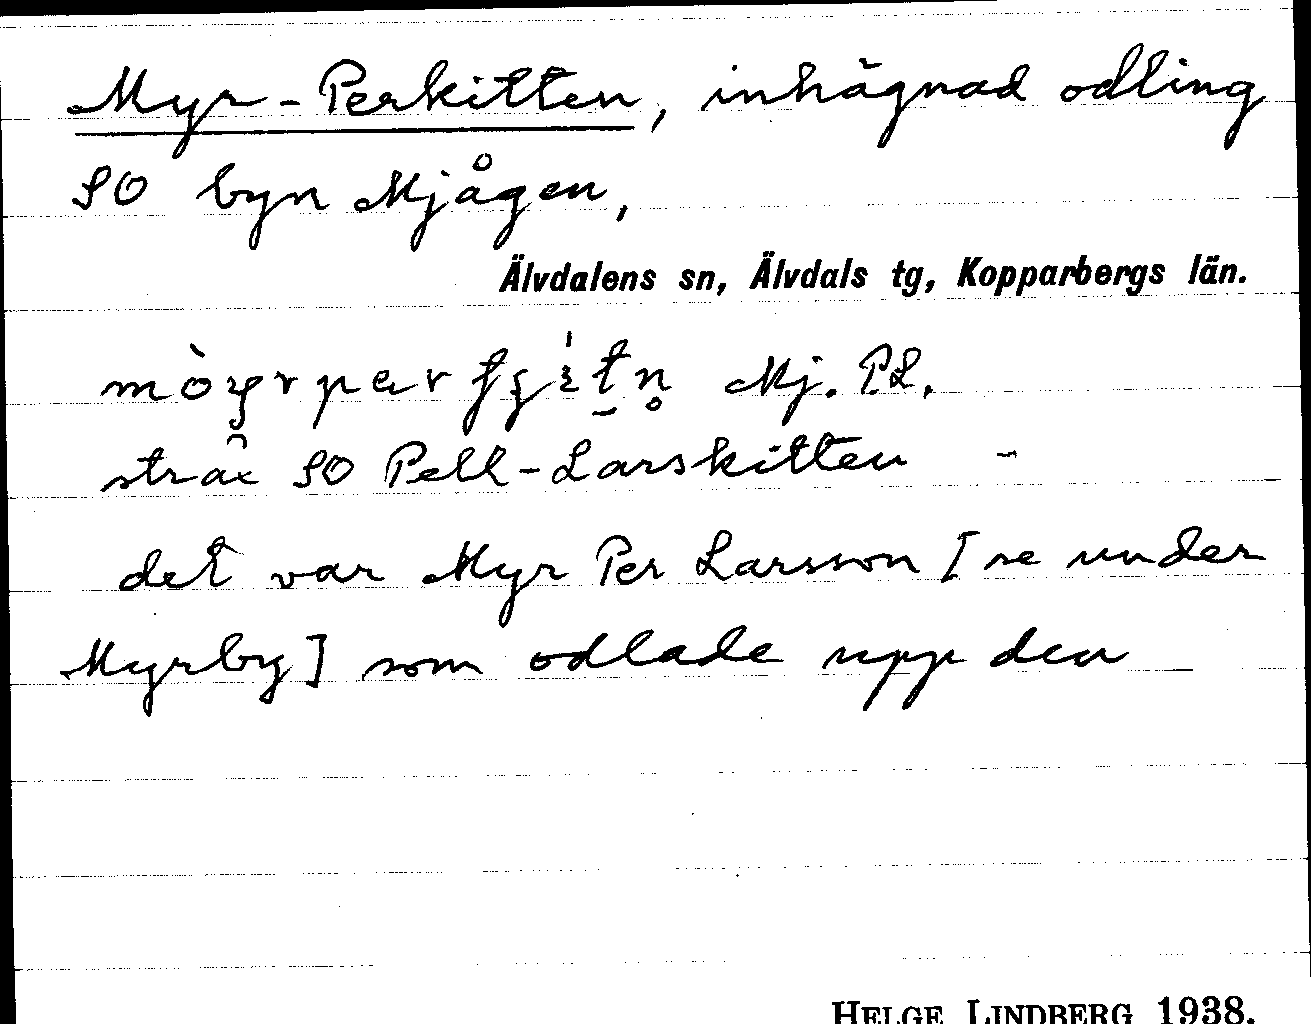 Myr-Perkitten, inhägnad odling
SO byn Mjågen,
Älvdalens sn, Älvdals tg, Kopparbergs län.
Mj. P.L.
strax SO Pell-Larskitten -
det var Myr Per Larsson [se under
Myrby] som odlade upp den
HELGE LINDBERG 1938.